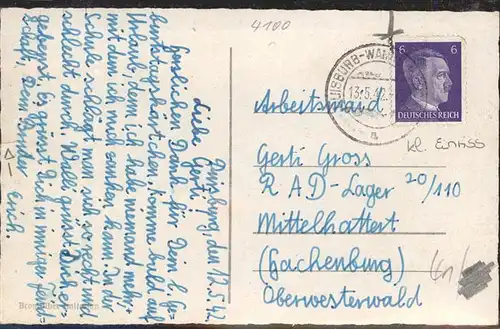 4100
Duisburg, den 12.5.42.
Liebe Gerti!
Herzlichen Dank für Dein l. Ge-
burtstagskärtchen, komme bald auf
Urlaub, denn ich habe niemand mehr,
mit dem ich mich zanken kann. In der
Schule schlägt man sich so recht und
schlecht durch. Willi grüsst Dich
Es grüsst Dich in inniger
schaft, Dein Bruder
Erich.
DUISBURG-WAN
13.5.42
a
6 6
DEUTSCHES REICH
kl. Einriss
Arbeitsmaid
Gerti Gross
R A D - Lager 20/110
Mittelhattert
(Hachenburg)
Oberwesterwald